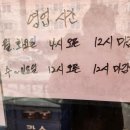 영업 시간
월,화요일 4시 오픈 12시 마감
수~일요일 12시 오픈 12시 마감